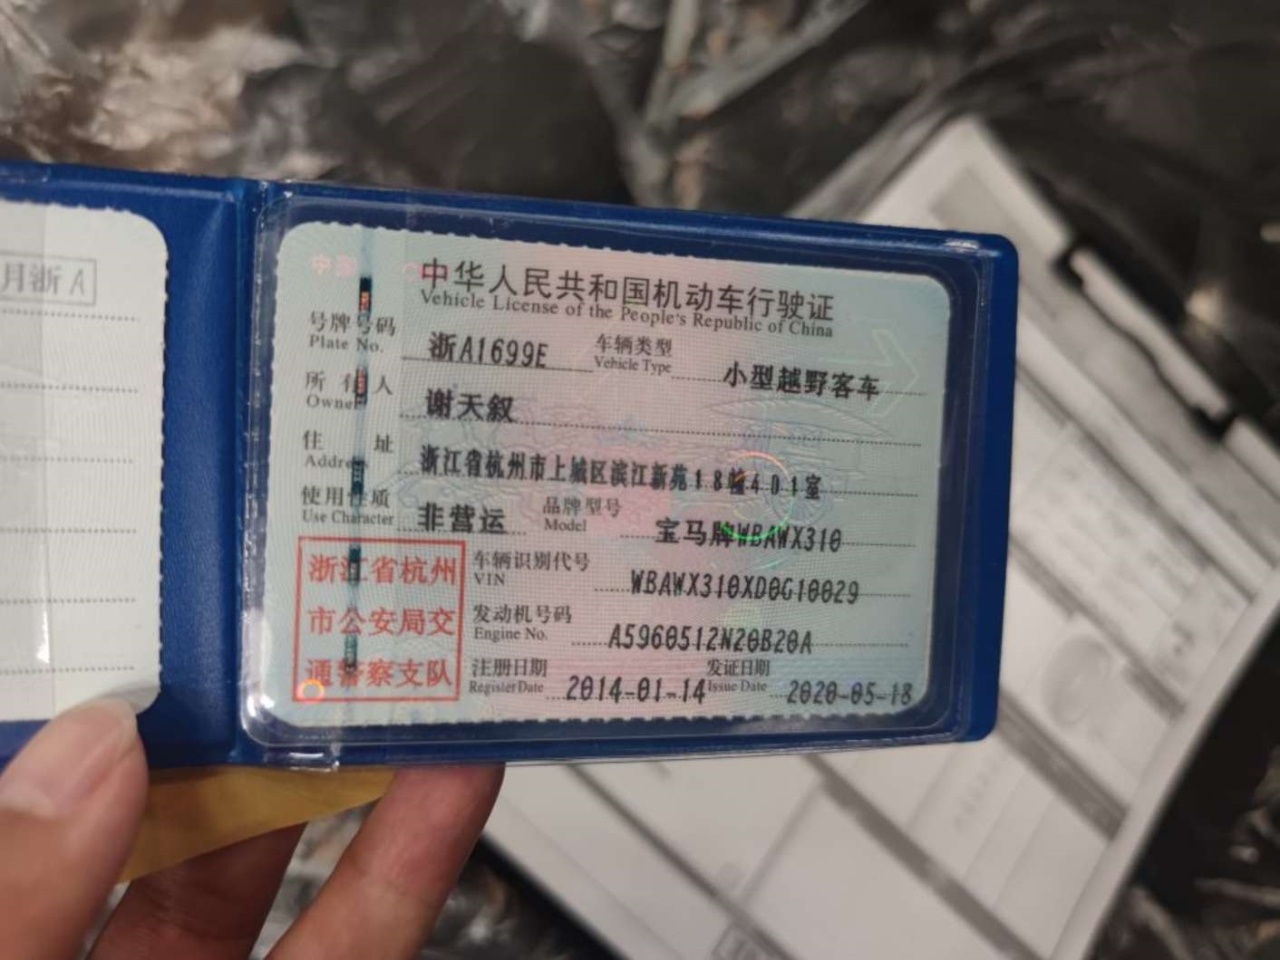 月浙A
中华人民共和国机动车行驶证
Vehicle License of the People's Republic of China
号牌号码 浙A1699E 车辆类型 小型越野客车
Plate No. Vehicle Type
所有人 谢天叙
Owner
住址 浙江省杭州市上城区滨江新苑18幢401室
Address
使用性质 非营运 品牌型号 宝马牌WBAWX310
Use Character Model
浙江省杭州
市公安局交
通警察支队
车辆识别代号 WBAWX310XD0G10029
VIN
发动机号码 A5960512N20B20A
Engine No.
注册日期 2014-01-14 发证日期 2020-05-18
Register Date Issue Date